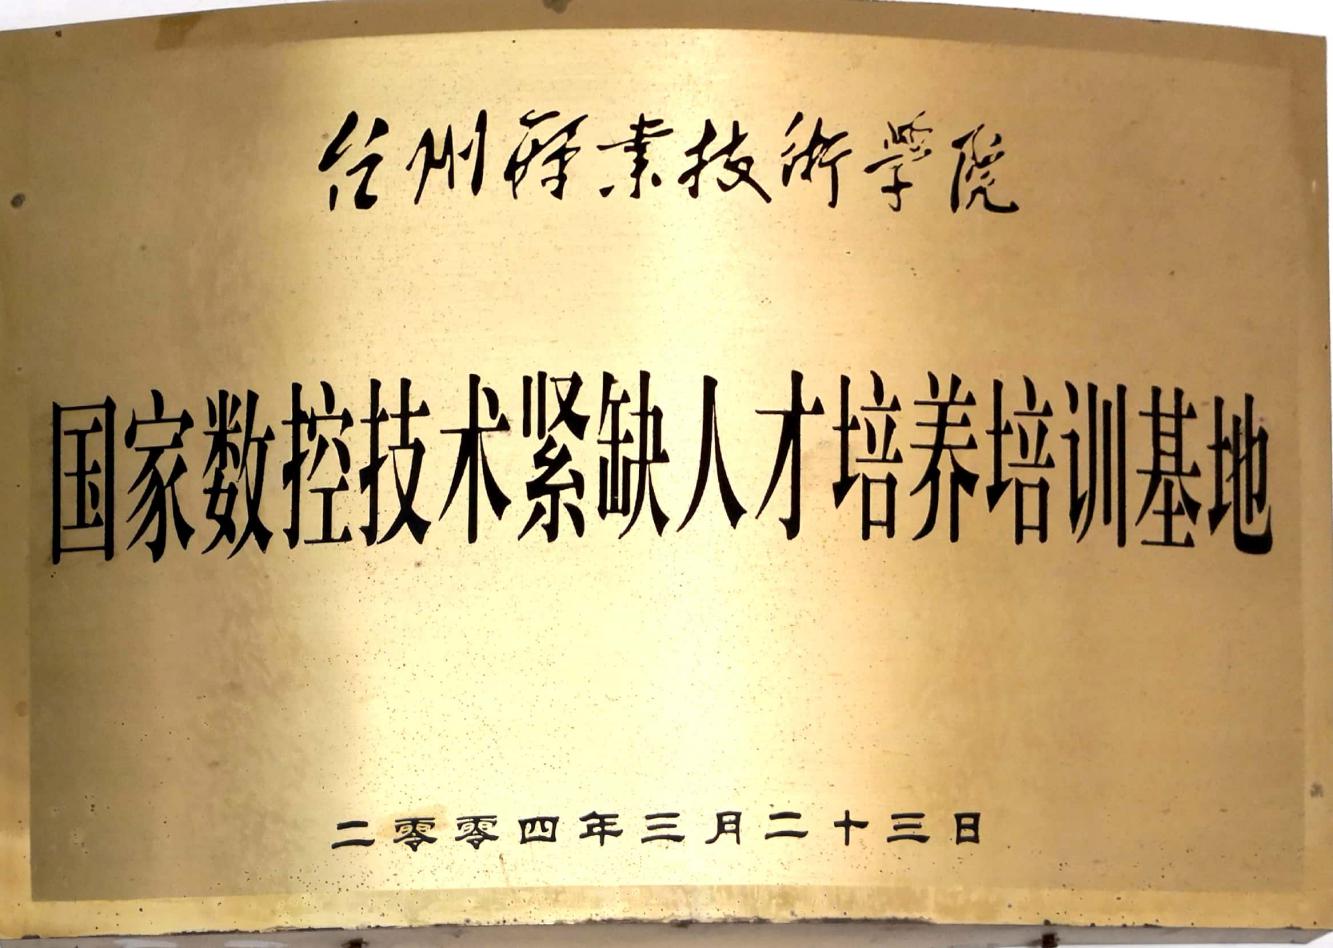 台州职业技术学院
国家数控技术紧缺人才培养培训基地
二零零四年三月二十三日